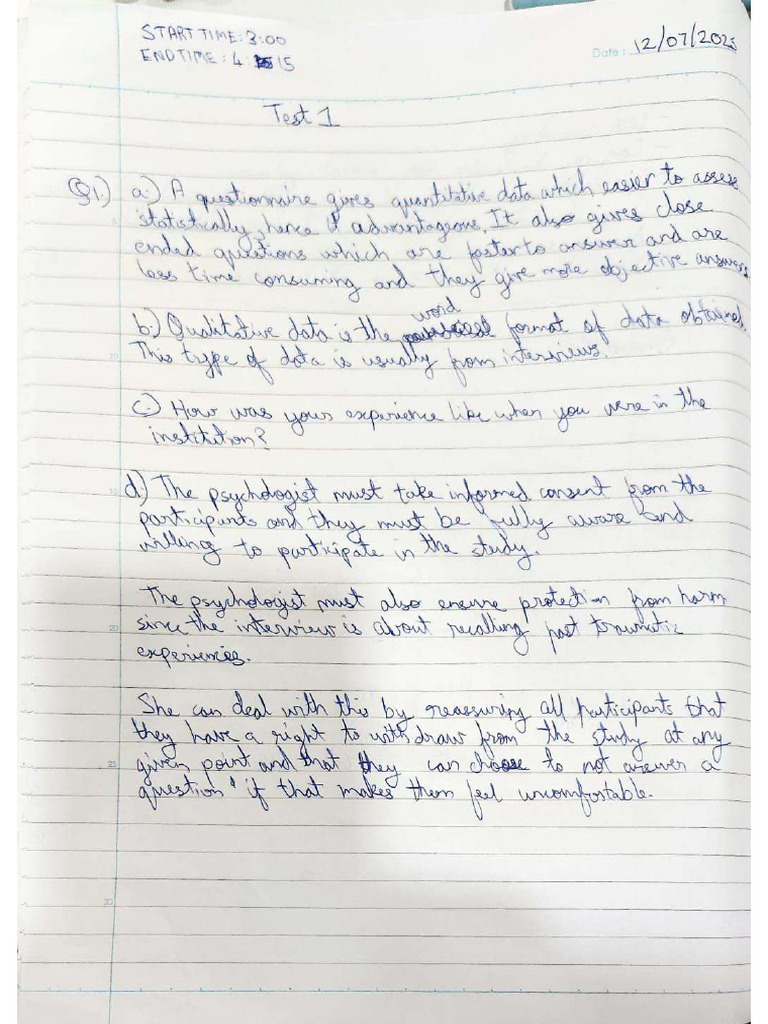 START TIME: 3:00
END TIME: 4: 15
Date: 12/07/2025
Test 1
Q1) a.) A questionnaire gives quantitative data which easier to assess
statistically, hence advantageous. It also gives close
ended questions which are faster to answer and are
less time consuming and they give more objective answers
word
b.) Qualitative data is the format of data obtained.
This type of data is usually from interviews.
c.) How was your experience like when you were in the
institution?
d.) The psychologist must take informed consent from the
participants and they must be fully aware and
willing to participate in the study.
The psychologist must also ensure protection from harm
since the interview is about recalling past traumatic
experiences.
She can deal with this by reassuring all participants that
they have a right to withdraw from the study at any
given point and that they can choose to not answer a
question if that makes them feel uncomfortable.
10
20
25
30